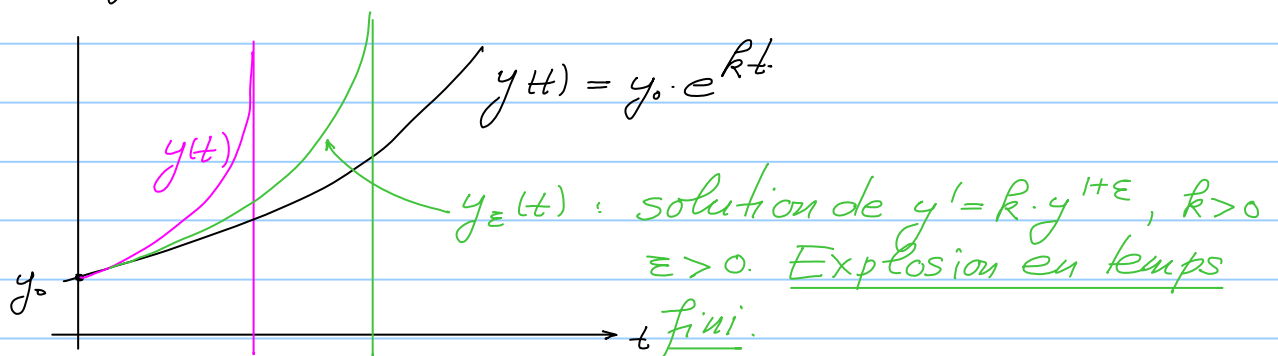 y(t) = y₀·e^{kt}
y(t)
y_ε(t) : solution de y' = k·y^{1+ε}, k>0
ε>0. Explosion en temps
y₀
t fini.